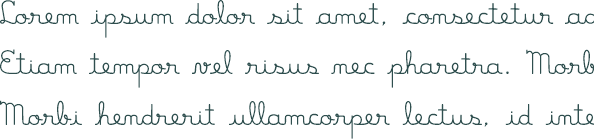 Lorem ipsum dolor sit amet, consectetur ad
Etiam tempor vel risus nec pharetra. Morb
Morbi hendrerit ullamcorper lectus, id inte